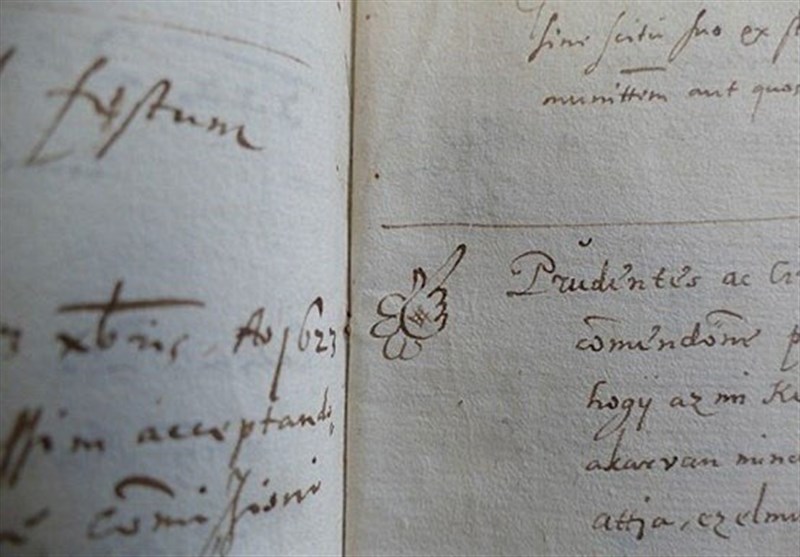 festum
xbris, Ao 1623
acceptandi
comissioni
sine scitu suo ex
munittem aut quos
Prudentes ac
comendone
hogÿ az mi
akarvan mind
attja, ez elmu